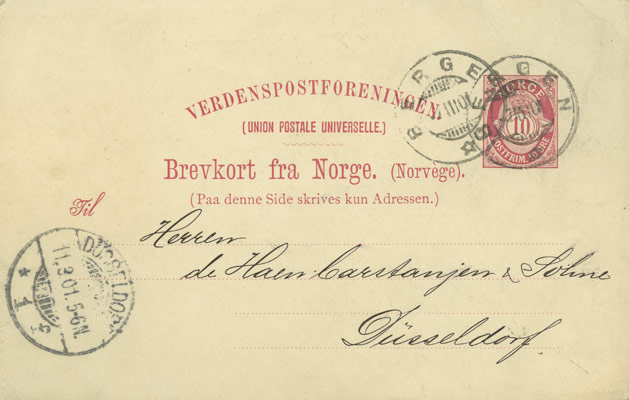 VERDENSPOSTFORENINGEN.
(UNION POSTALE UNIVERSELLE.)
Brevkort fra Norge. (Norvege).
(Paa denne Side skrives kun Adressen.)
Til
Herren
de Haen Carstanjen & Söhne
Düsseldorf.
BERGEN
BERGEN
NORGE
10
POSTFRIM. 10 ØRE
DÜSSELDORF
11.3.01.5-6N.
* 1